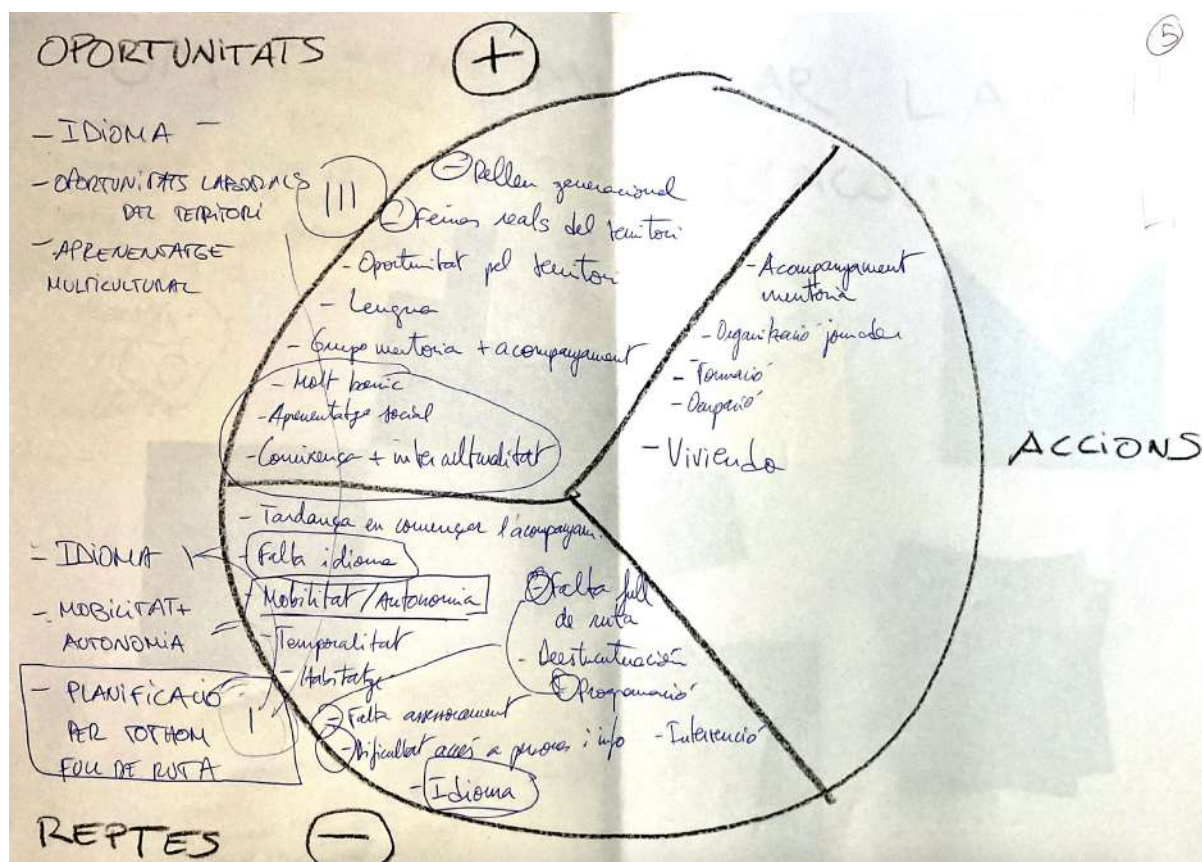 OPORTUNITATS
+
5
- IDIOMA -
- OPORTUNITATS LABORALS
DEL TERRITORI
- APRENENTATGE
MULTICULTURAL
III
- Relleu generacional
- Feines reals del territori
- Oportunitat pel territori
- Lengua
- Grupo mentoria + acompanyament
- Molt bonic
- Aprenentatge social
- Coneixença + interculturalitat
- Acompanyament
mentoria
- Organització jornades
- Formació
- Ocupació
- Vivienda
ACCIONS
- Tardança en començar l'acompanyam.
- Falta idioma
- Mobilitat/Autonomia
- Temporalitat
- Habitatge
- Falta assessorament
- Dificultat accés a persones i info
- Idioma
- Falta full
de ruta
- Desestructuración
- Programació
- Intervenció
- IDIOMA
- MOBILITAT +
AUTONOMIA
- PLANIFICACIÓ
PER TOTHOM
FULL DE RUTA
I
REPTES
-